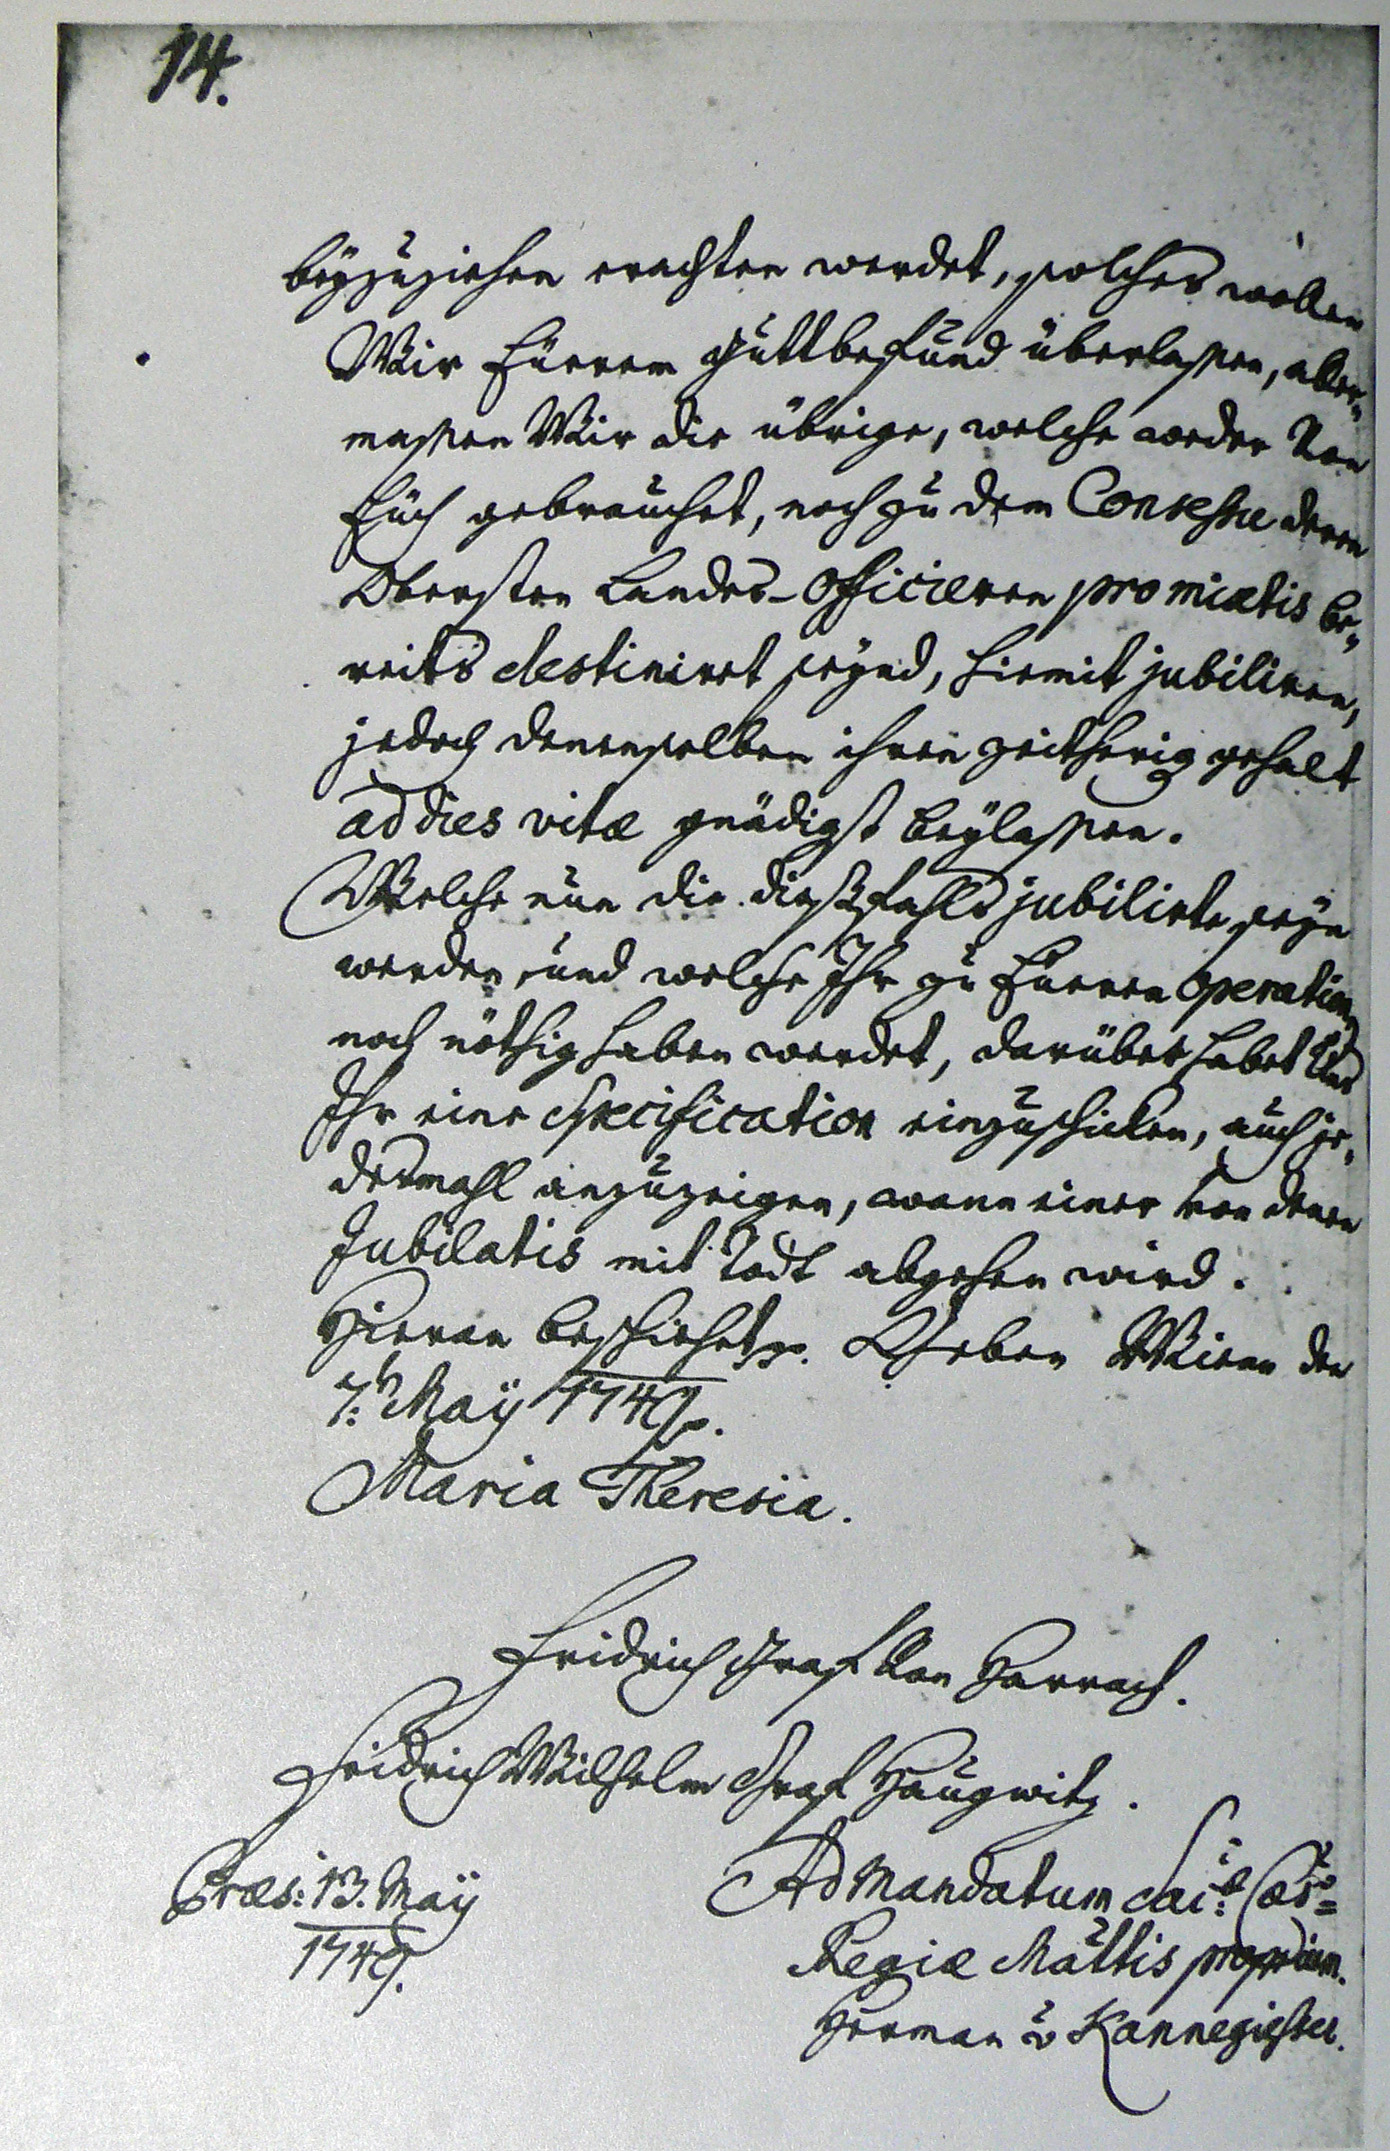 14.
beyzuziehen erachten werdet, solches wollen
Wir Eürem guttbefund überlassen, aller„
massen Wir die übrige, welche weder Von
Eüch gebrauchet, noch zu dem Consessu deren
Obersten Landes-Officieren pro miætis be„
reits destiniret seynd, hiemit jubiliren,
jedoch denenselben ihren zeitherig gehalt
ad dies vitæ gnädigst beylassen.
Welche nun die dießfahls jubilirte seyn
werden, und welche Ihr zu Eüren operation
noch nöthig haben werdet, darüber habet Uns
Ihr eine Specification einzuschicken, auch je„
desmahl anzuzeigen, wann einer von denen
Jubilatis mit Todt abgehen wird.
Hieran beschiehet p. Geben Wienn den
7.ⁿ Maÿ 1749.
Maria Theresia.
Fridrich Graf Von Harrach.
Fridrich Wilhelm Graf Haugwitz.
Præs: 13. Maÿ
1749.
Ad Mandatum Sac:æ Cæs:o=
Regiæ Mattis proprium.
Herman v Kannegiesser.